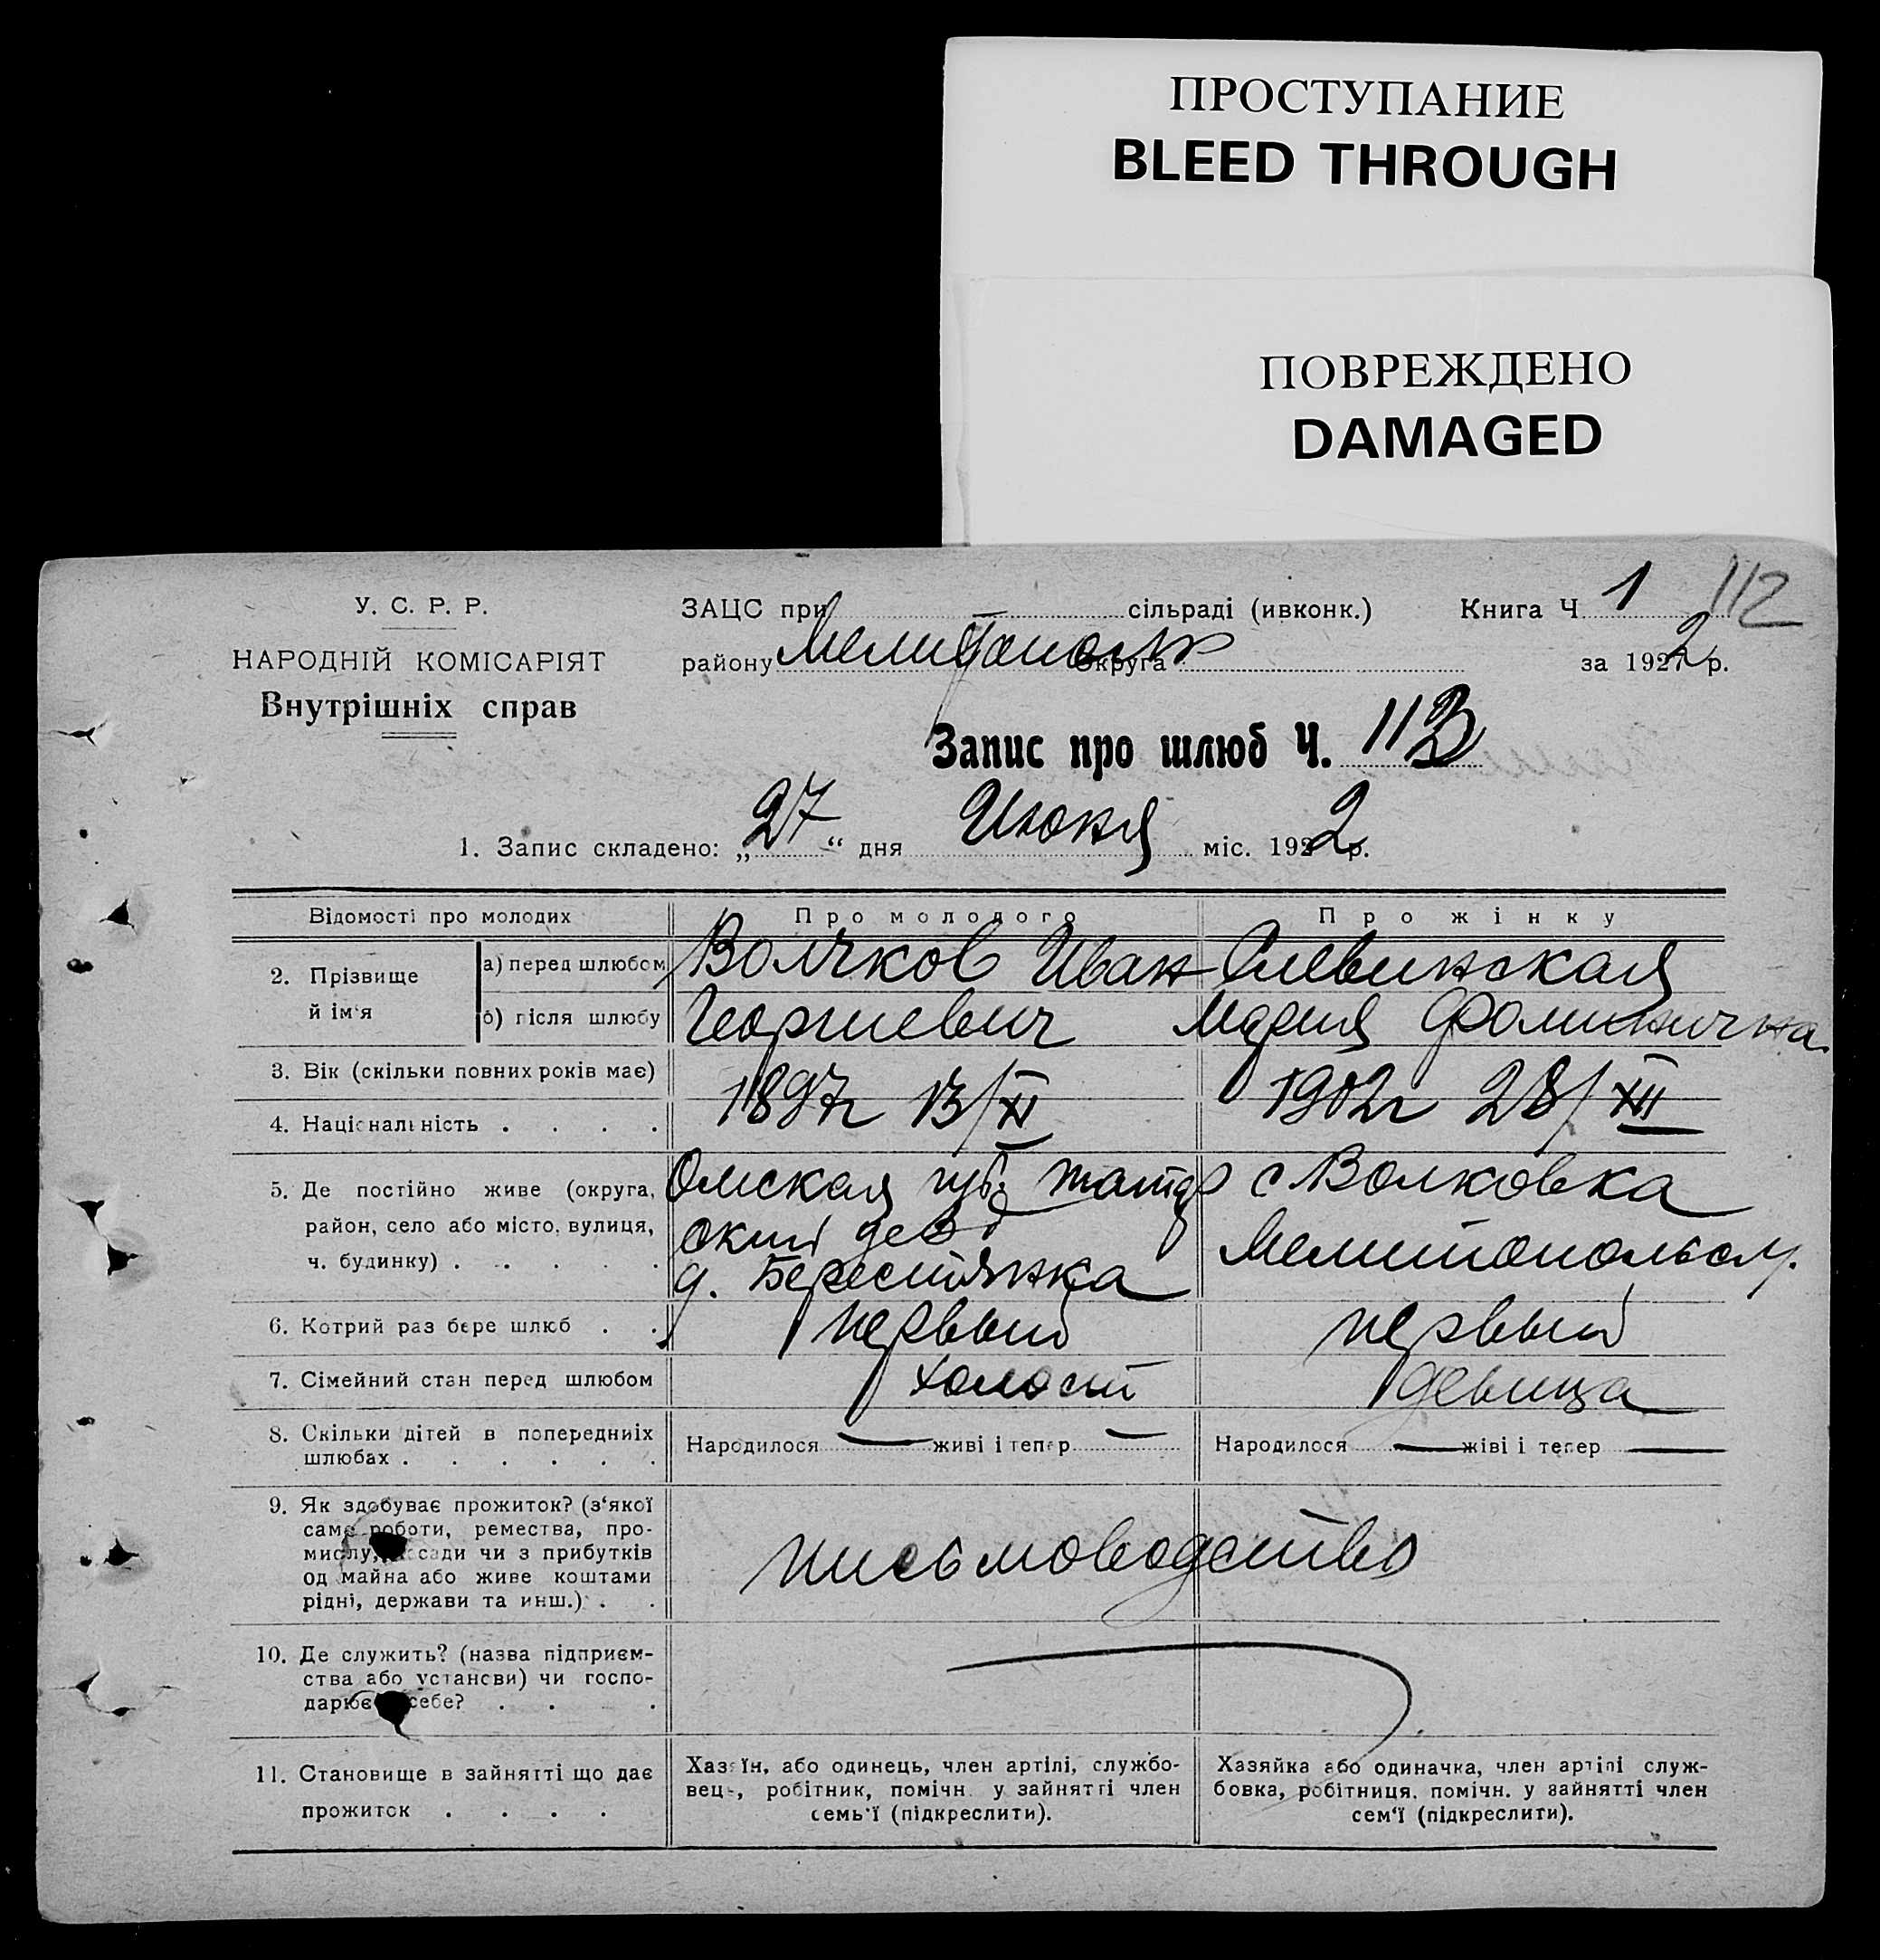 ПРОСТУПАНИЕ
BLEED THROUGH
ПОВРЕЖДЕНО
DAMAGED
У. С. Р. Р.
НАРОДНІЙ КОМІСАРІЯТ
Внутрішніх справ
ЗАЦС при сільраді (ивконк.) Книга Ч 1 112
району Мелитополь округа за 1922 р.
Запис про шлюб Ч. 113
1. Запис складено: „27“ дня Июня міс. 1922 р.
Відомості про молодих Про молодого Про жінку
2. Прізвище й ім'я
а) перед шлюбом Волчков Иван Слевинская
б) після шлюбу Георгиевич Мария
3. Вік (скільки повних років має)
1897г 13/XI 1902г 28/XII
4. Національність . . . .
5. Де постійно живе (округа, Омская губ. с Волковка
район, село або місто, вулиця,
ч. будинку) . . . . . д. Берестянка
6. Котрий раз бере шлюб . . первый первый
7. Сімейний стан перед шлюбом холост девица
8. Скільки дітей в попередніх
шлюбах . . . . . . Народилося — живі і тепер — Народилося — жіві і тепер —
9. Як здобуває прожиток? (з'якої
саме роботи, ремества, про-
мислу, посади чи з прибутків
од майна або живе коштами
рідні, держави та инш.) . .
письмоводство
10. Де служить? (назва підприєм-
ства або установи) чи госпо-
дарює себе? . . .
11. Становище в зайнятті що дає
прожиток . . . .
Хазяїн, або одинець, член артілі, службо-
вець, робітник, помічн. у зайнятті член
семь'ї (підкреслити).
Хазяйка або одиначка, член артілі служ-
бовка, робітниця, помічн. у зайнятті член
сем'ї (підкреслити).